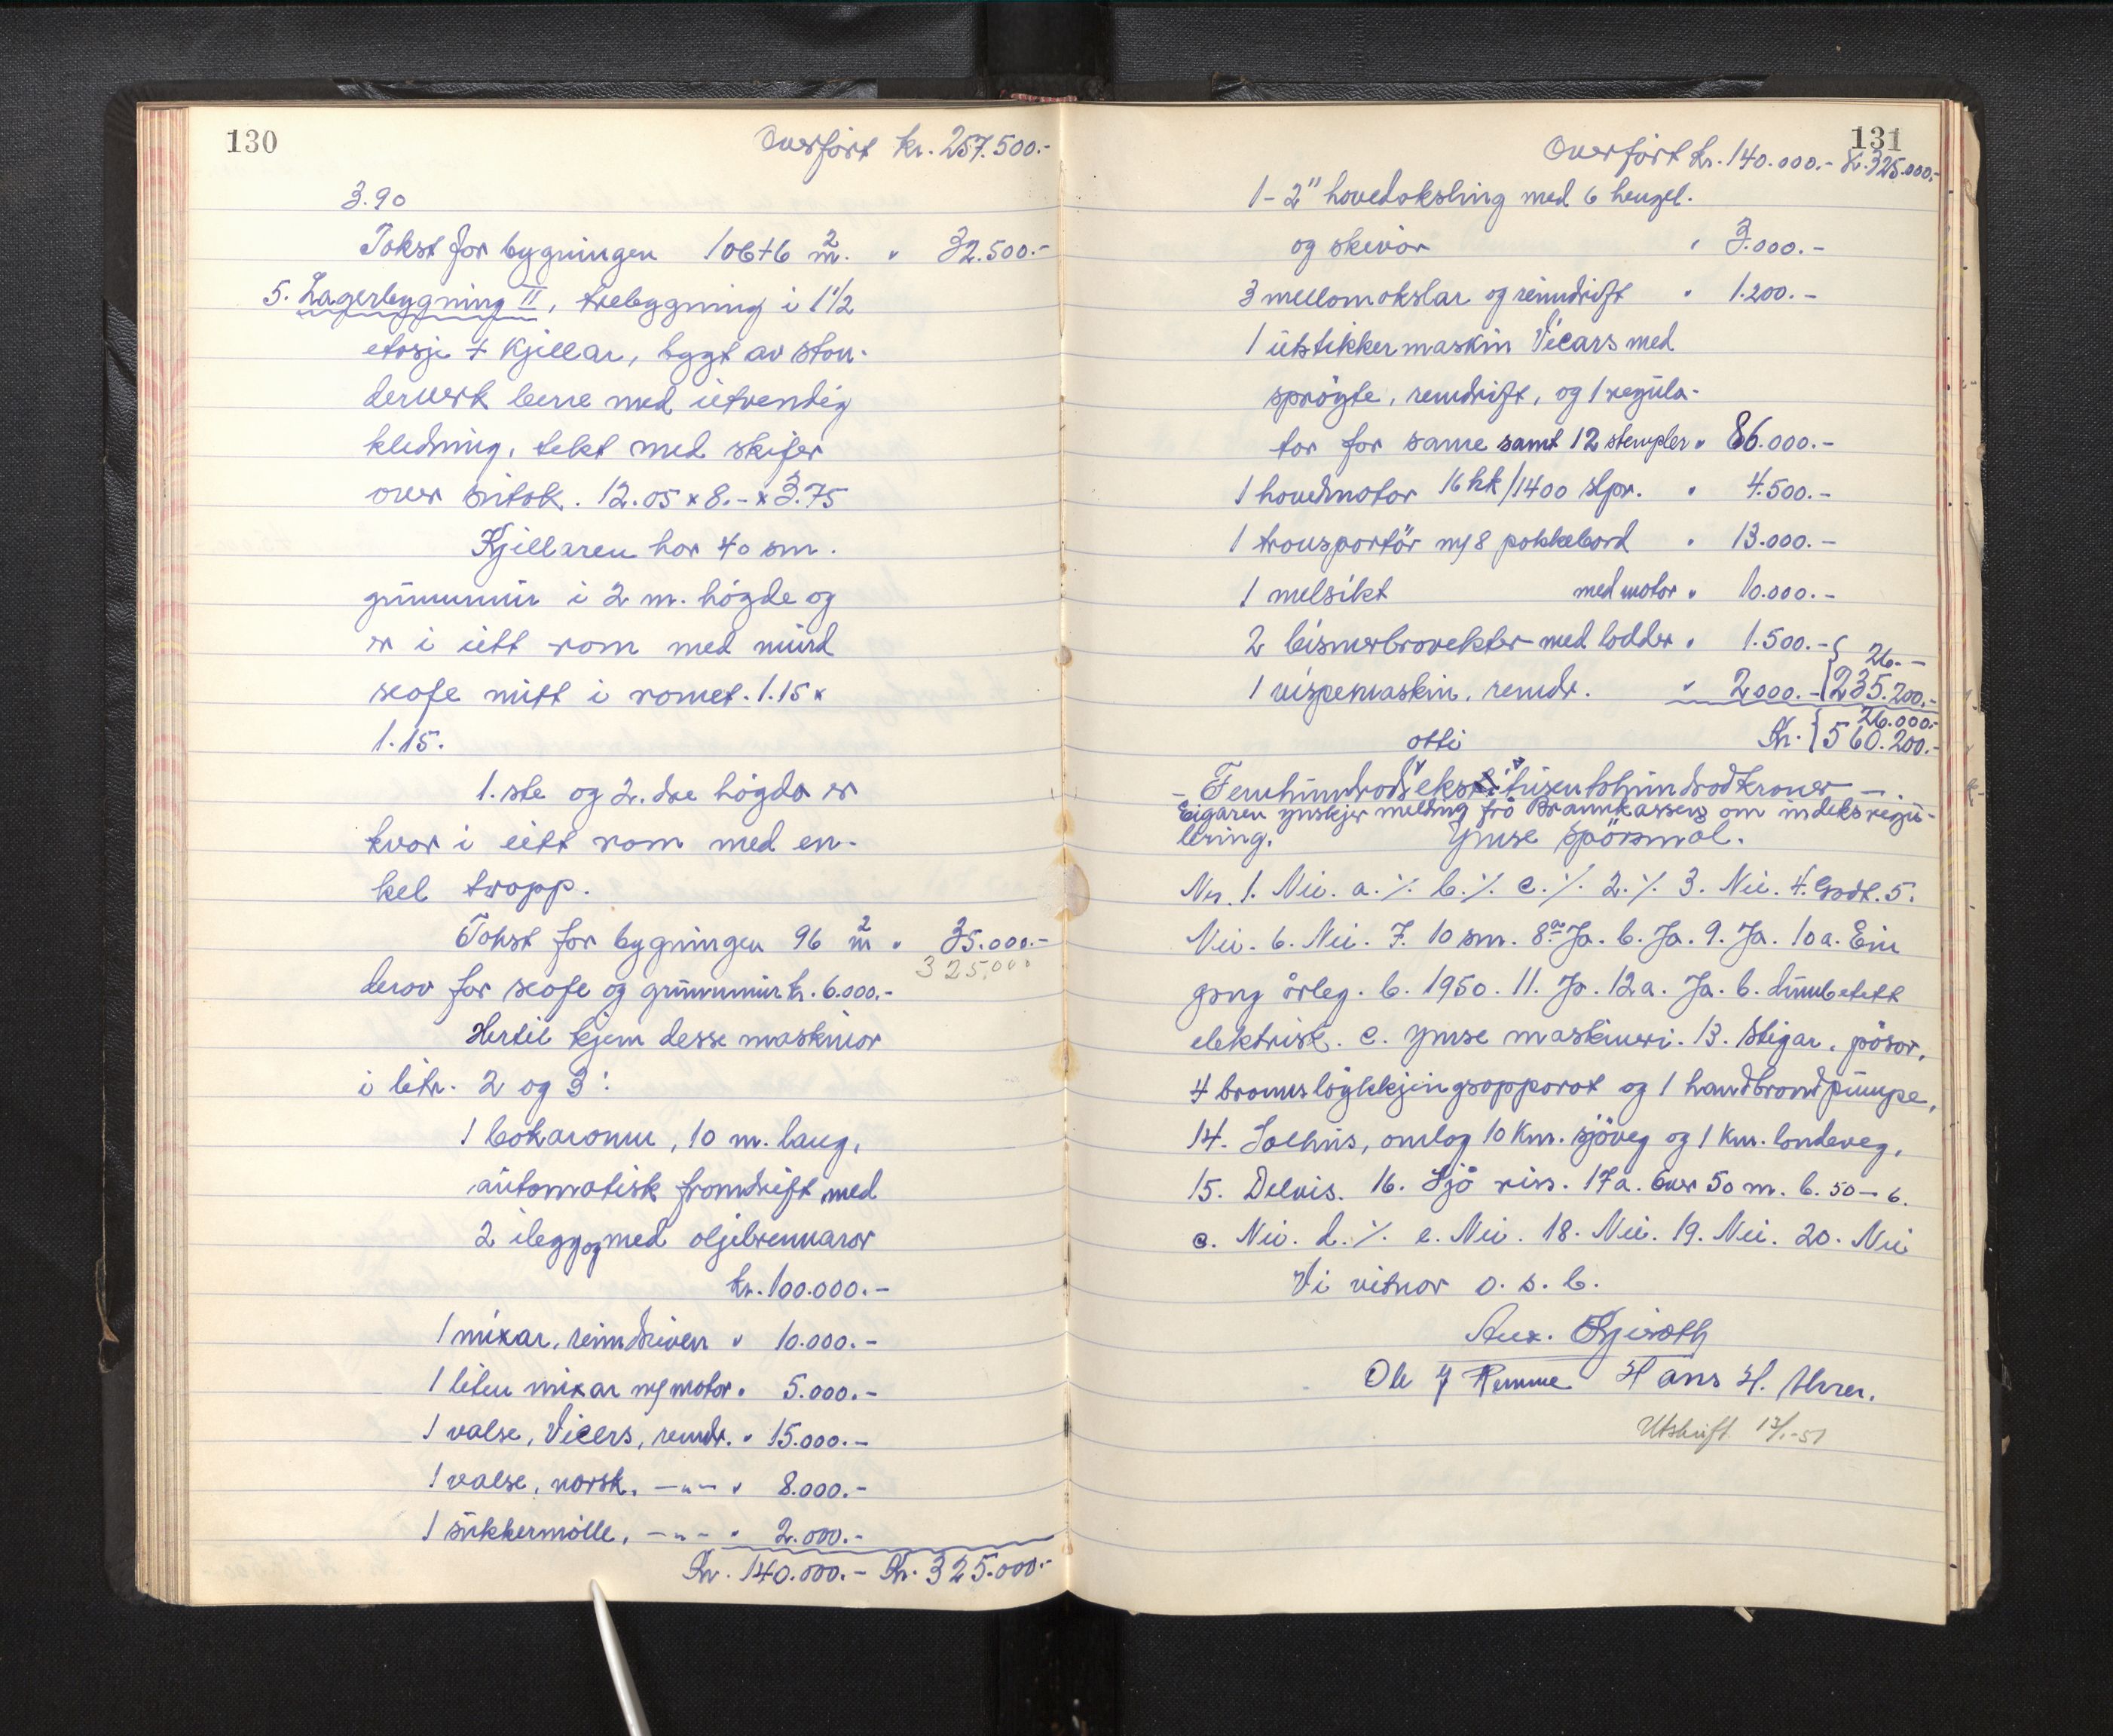 130
Overført kr. 257.500.-
3.90
Takst for bygningen 106+6 m². " 32.500.-
5. Lagerbygning II, trebygning i 1 1/2
etasje + kjellar, bygt av stan-
derverk berre med utvendig
kledning, tekt med skifer
over sutak. 12.05 x 8.- x 3.75
Kjellaren har 40 sm.
grunnmur i 2 m. høgde og
er i eitt rom med murd
scofe mitt i romet. 1.15 x
1.15.
1.ste og 2.dre høgda er
kvar i eitt rom med en-
kel tropp.
Takst for bygningen 96 m² " 35.000.-
325.000
derav for scofe og grunnmur kr. 6.000.-
Hertil kjem desse maskinor
i litr. 2 og 3:
1 bakaromn, 10 m. lang,
automatisk framdrift med
2 ilegg og med oljebrennarar
kr. 100.000.-
1 mixar, reimdriven " 10.000.-
1 liten mixar m/motor " 5.000.-
1 valse, Vicers, remdr. " 15.000.-
1 valse, norsk, -"- " 8.000.-
1 sukkermølle, -"- " 2.000.-
Kr. 140.000.- Kr. 325.000.-
131
Overført kr. 140.000.- kr. 325.000.-
1 - 2" hovedaksling med 6 hengl.
og skivor " 3.000.-
3 mellomakslar og reimdrift " 1.200.-
1 utstikkermaskin Vicars med
sprøyte, remdrift, og 1 regula-
tor for same samt 12 stempler " 86.000.-
1 hovedmotor 16 hk/1400 slpr. " 4.500.-
1 transportör m/8 pakkebord " 13.000.-
1 melsikt med motor " 10.000.-
2 bismerbrovekter med lodder " 1.500.- 26.-
1 vispemaskin, remdr. " 2000.- 235.200.-
26.000.-
Kr. 560.200.-
otti
- Femhundradseksti tusen tohundradkroner -.
Eigaren ynskjer melding frå Brannkassen om indeksregu-
lering. Ymse spørsmål.
Nr. 1. Nei. a. ٪ b. ٪ c. ٪ 2. ٪ 3. Nei. 4. Godt. 5.
Nei. 6. Nei. 7. 10 sm. 8.a Ja. b. Ja. 9. Ja. 10 a. Ein
gong årleg. b. 1950. 11. Ja. 12 a. Ja. b. Aumbetett
elektrisk. c. Ymse maskineri. 13. Stigar, pösor,
4 brannsløykkjingsapparat og 1 handbrandpumpe,
14. Solhus, omlag 10 km. sjöveg og 1 km. landeveg,
15. Delvis. 16. Sjå riss. 17 a. Over 50 m. b. 50 - 6.
c. Nei. d. ٪ e. Nei. 18. Nei. 19. Nei. 20. Nei
Vi vitnar o. s. b.
Ole J Remme Hans H.
Utskrift 13/1-51